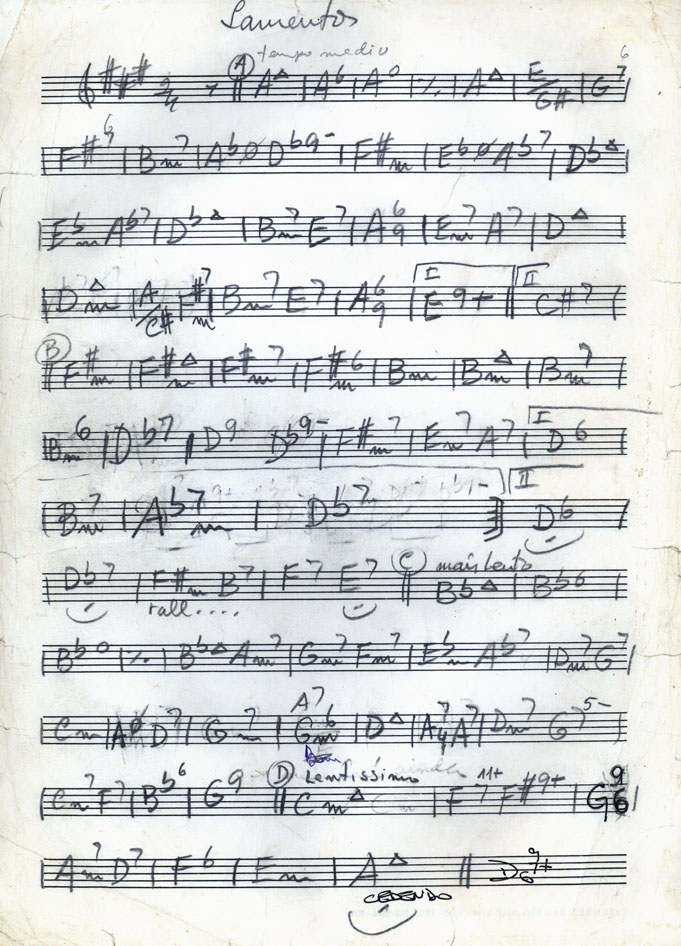 Lamentos
A tempo medio 6
2/4 A△ | A6 | A° | ٪ | A△ | E/G# | G7
F#6 | Bm7 | Abø Db9- | F#m | Ebø Ab7 | Db△
Ebm Ab7 | Db△ | Bm7 E7 | A6/9 | Em7 A7 | D△
Dm△ | A/C# F#m7 | Bm7 E7 | A6/9 | I E9+ || II C#7
B
F#m | F#m△ | F#m7 | F#m6 | Bm | Bm△ | Bm7
Bm6 | Db7 | D9- Db9- | F#m7 | Em7 A7 | I D6
Bm7 | Ab7m | Db7 | II D6
Db7 | F#m B7 | F7 E7 || C mais lento Bb△ | Bb6
rall....
Bb° | ٪ | Bb△ Am7 | Gm7 Fm7 | Ebm Ab7 | Dm7 G7
Cm | Aø D7 | Gm7 | A7 Gm6 | D△ | A74 A7 | Dm7 G75-
Cm7 F7 | Bb6 | G9- || D Lentissimo Cm△ | F711+ F#9+ | G69
Am7 D7 | F6 | Em | A△ || D69 7+
CEDENDO